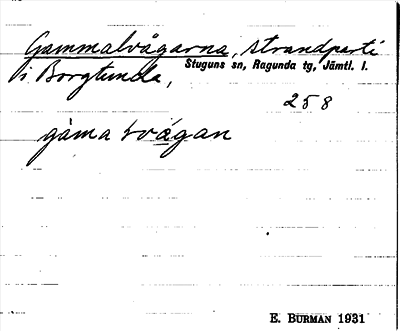 Gammalvågarna, strandparti
i Borgtunda, Stuguns sn, Ragunda tg, Jämtl. l.
258
gàma Ivágan
E. BURMAN 1931